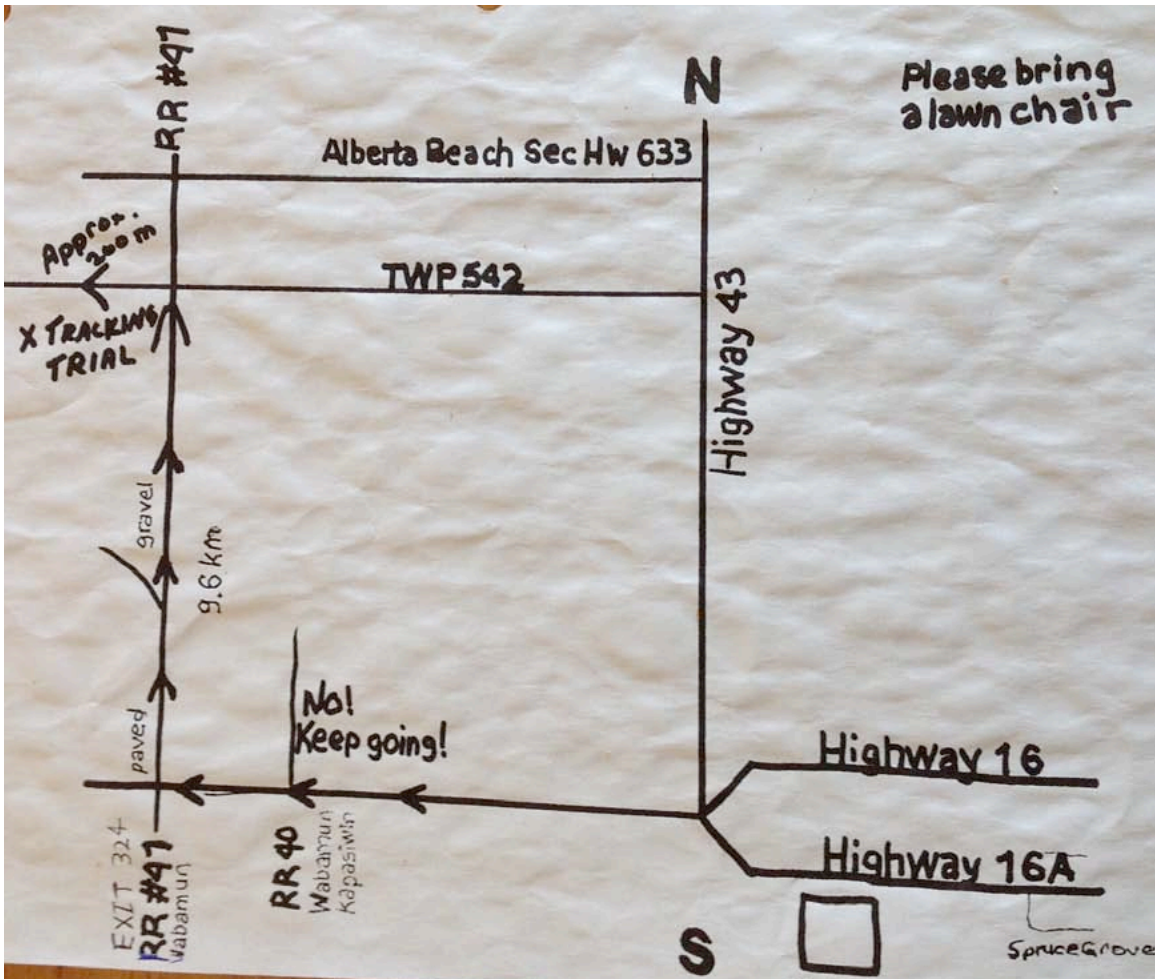 RR #41
N
Please bring
a lawn chair
Alberta Beach Sec Hw 633
Approx.
200 m
TWP 542
X TRACKING
TRIAL
Highway 43
gravel
9.6 km
paved
No!
Keep going!
Highway 16
EXIT 324
RR #41
Wabamun
RR 40
Wabamun
Kapasiwin
Highway 16A
S
Spruce Grove